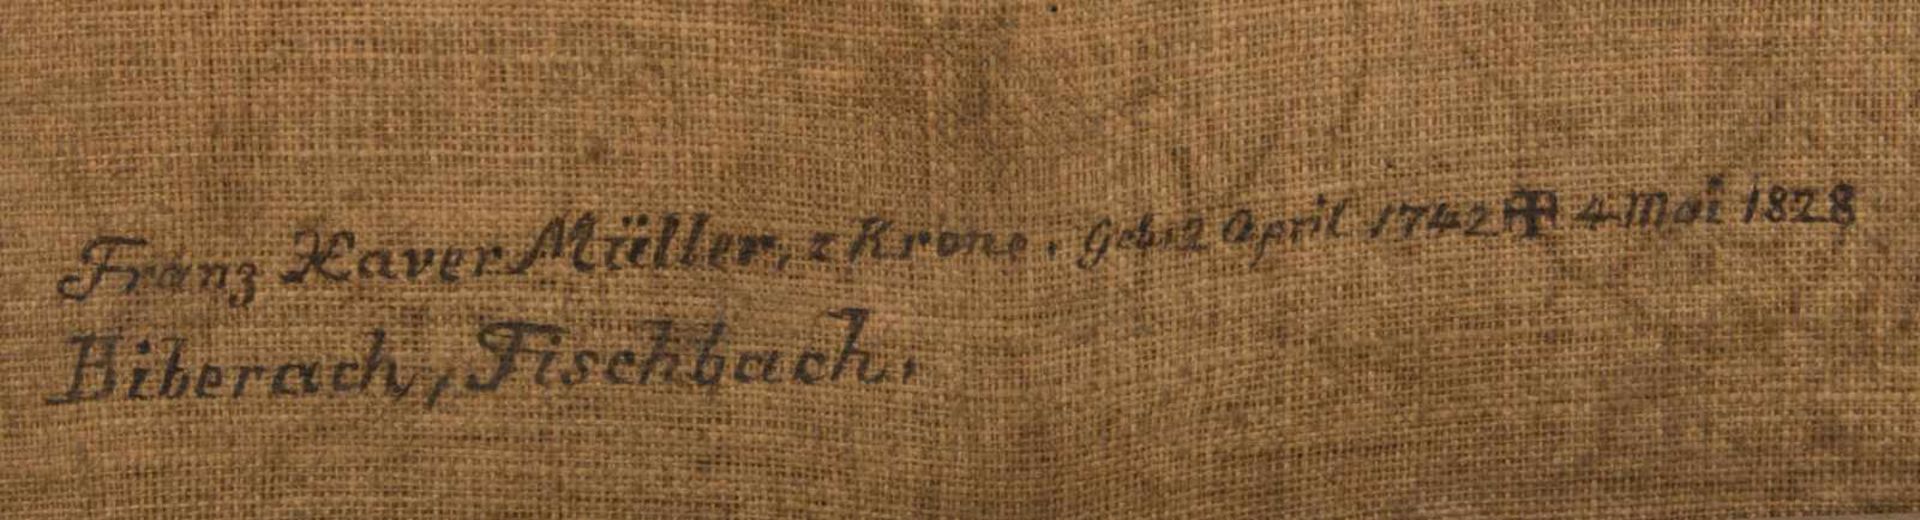 Franz Xaver Müller, z Krone. Geb. 12 April 1742 ✠ 4 Mai 1828
Biberach, Fischbach.